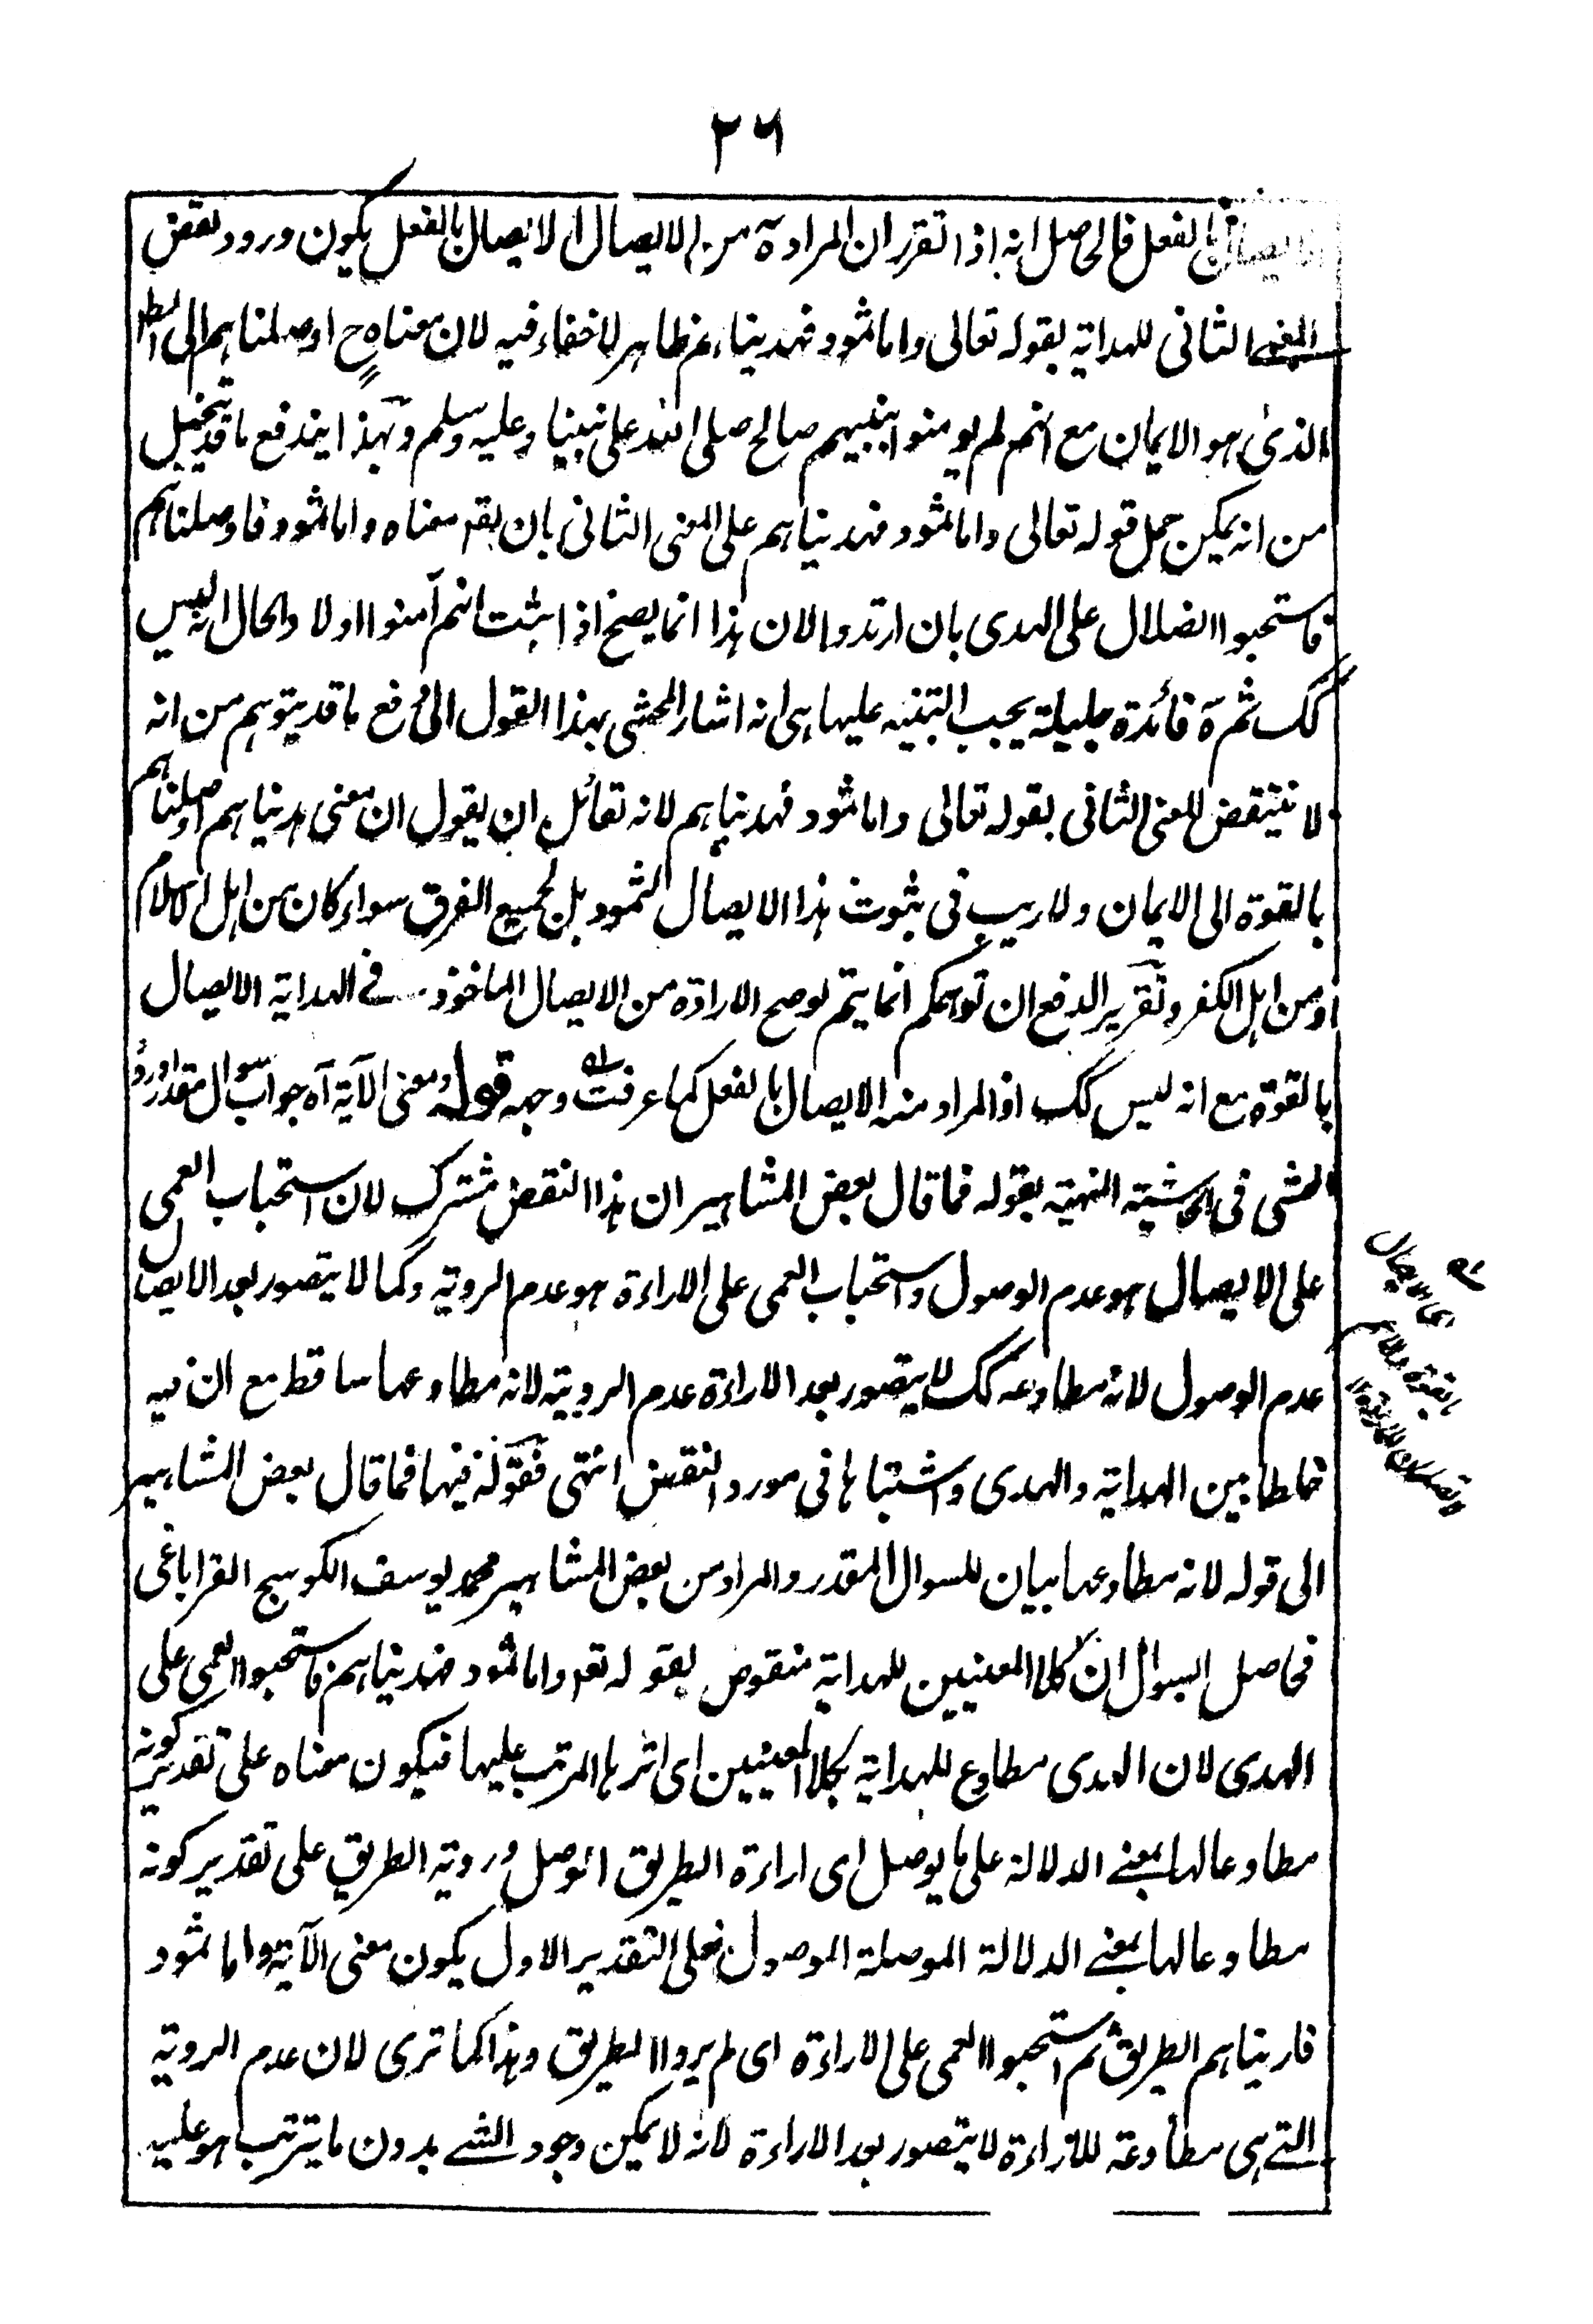 ٢٦
الايصال بالفعل فالحاصل انه اذا تقرر ان المراد ة من الايصال الايصال بالفعل يكون ورود نقض
المعنى الثانى للهداية بقوله تعالى واما ثمود فهديناهم ظاهر لا خفاء فيه لان معناه ح اوصلناهم الى المط
الذى هو الايمان مع انهم لم يومنوا بنبيهم صالح صلى الله على نبينا وعليه وسلم وبهذا يندفع ما قد يتخيل
من انه يمكن حمل قوله تعالى واما ثمود فهديناهم على المعنى الثانى بان يقدر معناه واما ثمود فاوصلناهم
فاستحبوا الضلال على الهدى بان ارتدوا لان هذا انما يصح اذا ثبت انهم آمنوا اولا والحال انه ليس
كك ثم ة فائدة جليلة يجب التنبيه عليها هى انه اشار المحشى بهذا القول الى دفع ما قد يتوهم من انه
لا ينتقض المعنى الثانى بقوله تعالى واما ثمود فهديناهم لانه لقائل ان يقول ان معنى هديناهم اوصلناهم
بالقوة الى الايمان ولا ريب فى ثبوت هذا الايصال لثمود بل لجميع الفرق سواء كان من اهل الاسلام
او من اهل الكفر وتقرير الدفع ان توهمكم انما يتم لو صح الارادة من الايصال الماخوذ فى الهداية الايصال
بالقوة مع انه ليس كك اذ المراد منه الايصال بالفعل كما عرفت وجهه قوله ومعنى الآية آه جواب سوال مقدر اورده
المحشى فى الحاشية المنهية بقوله فما قال بعض المشاهير ان هذا النقض مشترك لان استحباب العمى
على الايصال هو عدم الوصول واستحباب العمى على الاراءة هو عدم الروية وكما لا يتصور بعد الايصال
عدم الوصول لانه مطاوعه كك لا يتصور بعد الاراءة عدم الروية لانه مطاوعها ساقط مع ان فيه
خلطا بين الهداية والهدى واشتباها فى مورد النقض انتهى فقوله فيها فما قال بعض المشاهير
الى قوله لانه مطاوعها بيان للسوال المقدر والمراد من بعض المشاهير محمد يوسف الكوسج القراباغى
فحاصل السوال ان كلا المعنيين للهداية منقوض بقوله تعه واما ثمود فهديناهم فاستحبوا العمى على
الهدى لان الهدى مطاوع للهداية بكلا المعنيين اى اثرها المرتب عليها فيكون معناه على تقدير كونه
مطاوعا لها بمعنى الدلالة على ما يوصل اى اراءة الطريق الموصل وروية الطريق على تقدير كونه
مطاوعا لها بمعنى الدلالة الموصلة الوصول فعلى التقدير الاول يكون معنى الآية واما ثمود
فاريناهم الطريق ثم استحبوا العمى على الاراءة اى لم يروا الطريق وهذا كما ترى لان عدم الروية
التى هى مطاوعة للاراءة لا يتصور بعد الاراءة لانه لا يمكن وجود الشى بدون ما يترتب هو عليه